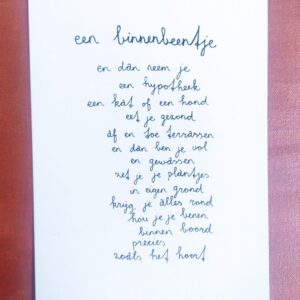 een binnenbeentje
en dan neem je
een hypotheek
een kat of een hond
eet je gezond
af en toe terrassen
en dan ben je vol
en gewassen
zet je je plantjes
in eigen grond
krijg je alles rond
hou je je benen
binnen boord
precies
zoals het hoort